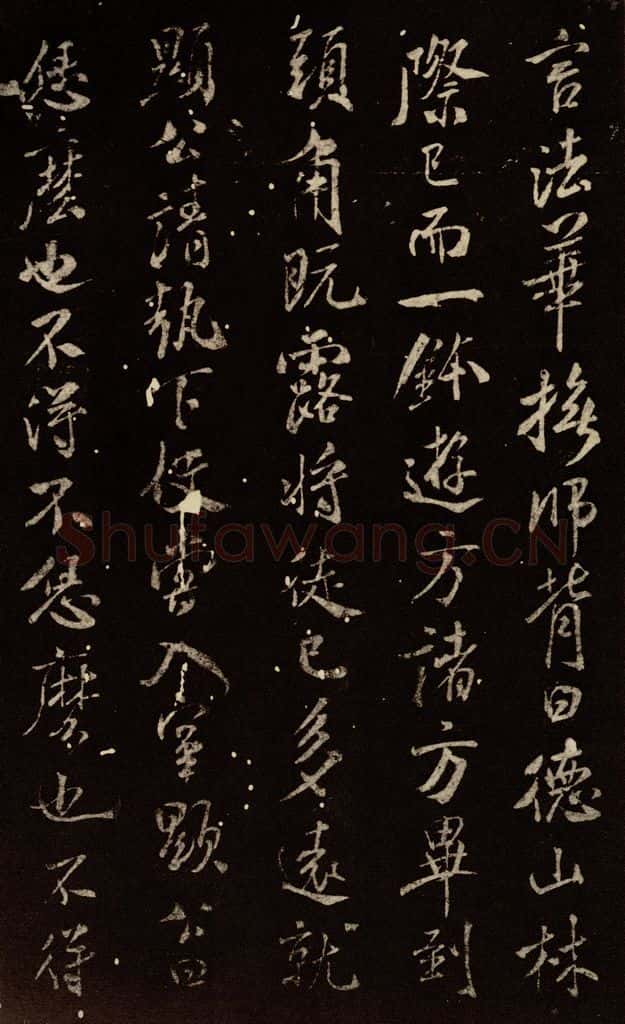 言法華撫師背曰德山林
際已而一鉢遊方諸方畢到
頭角既露將徒已多遠就
顯公請執下使入室顯公曰
恁麼也不得不恁麼也不得
Shufawang.CN